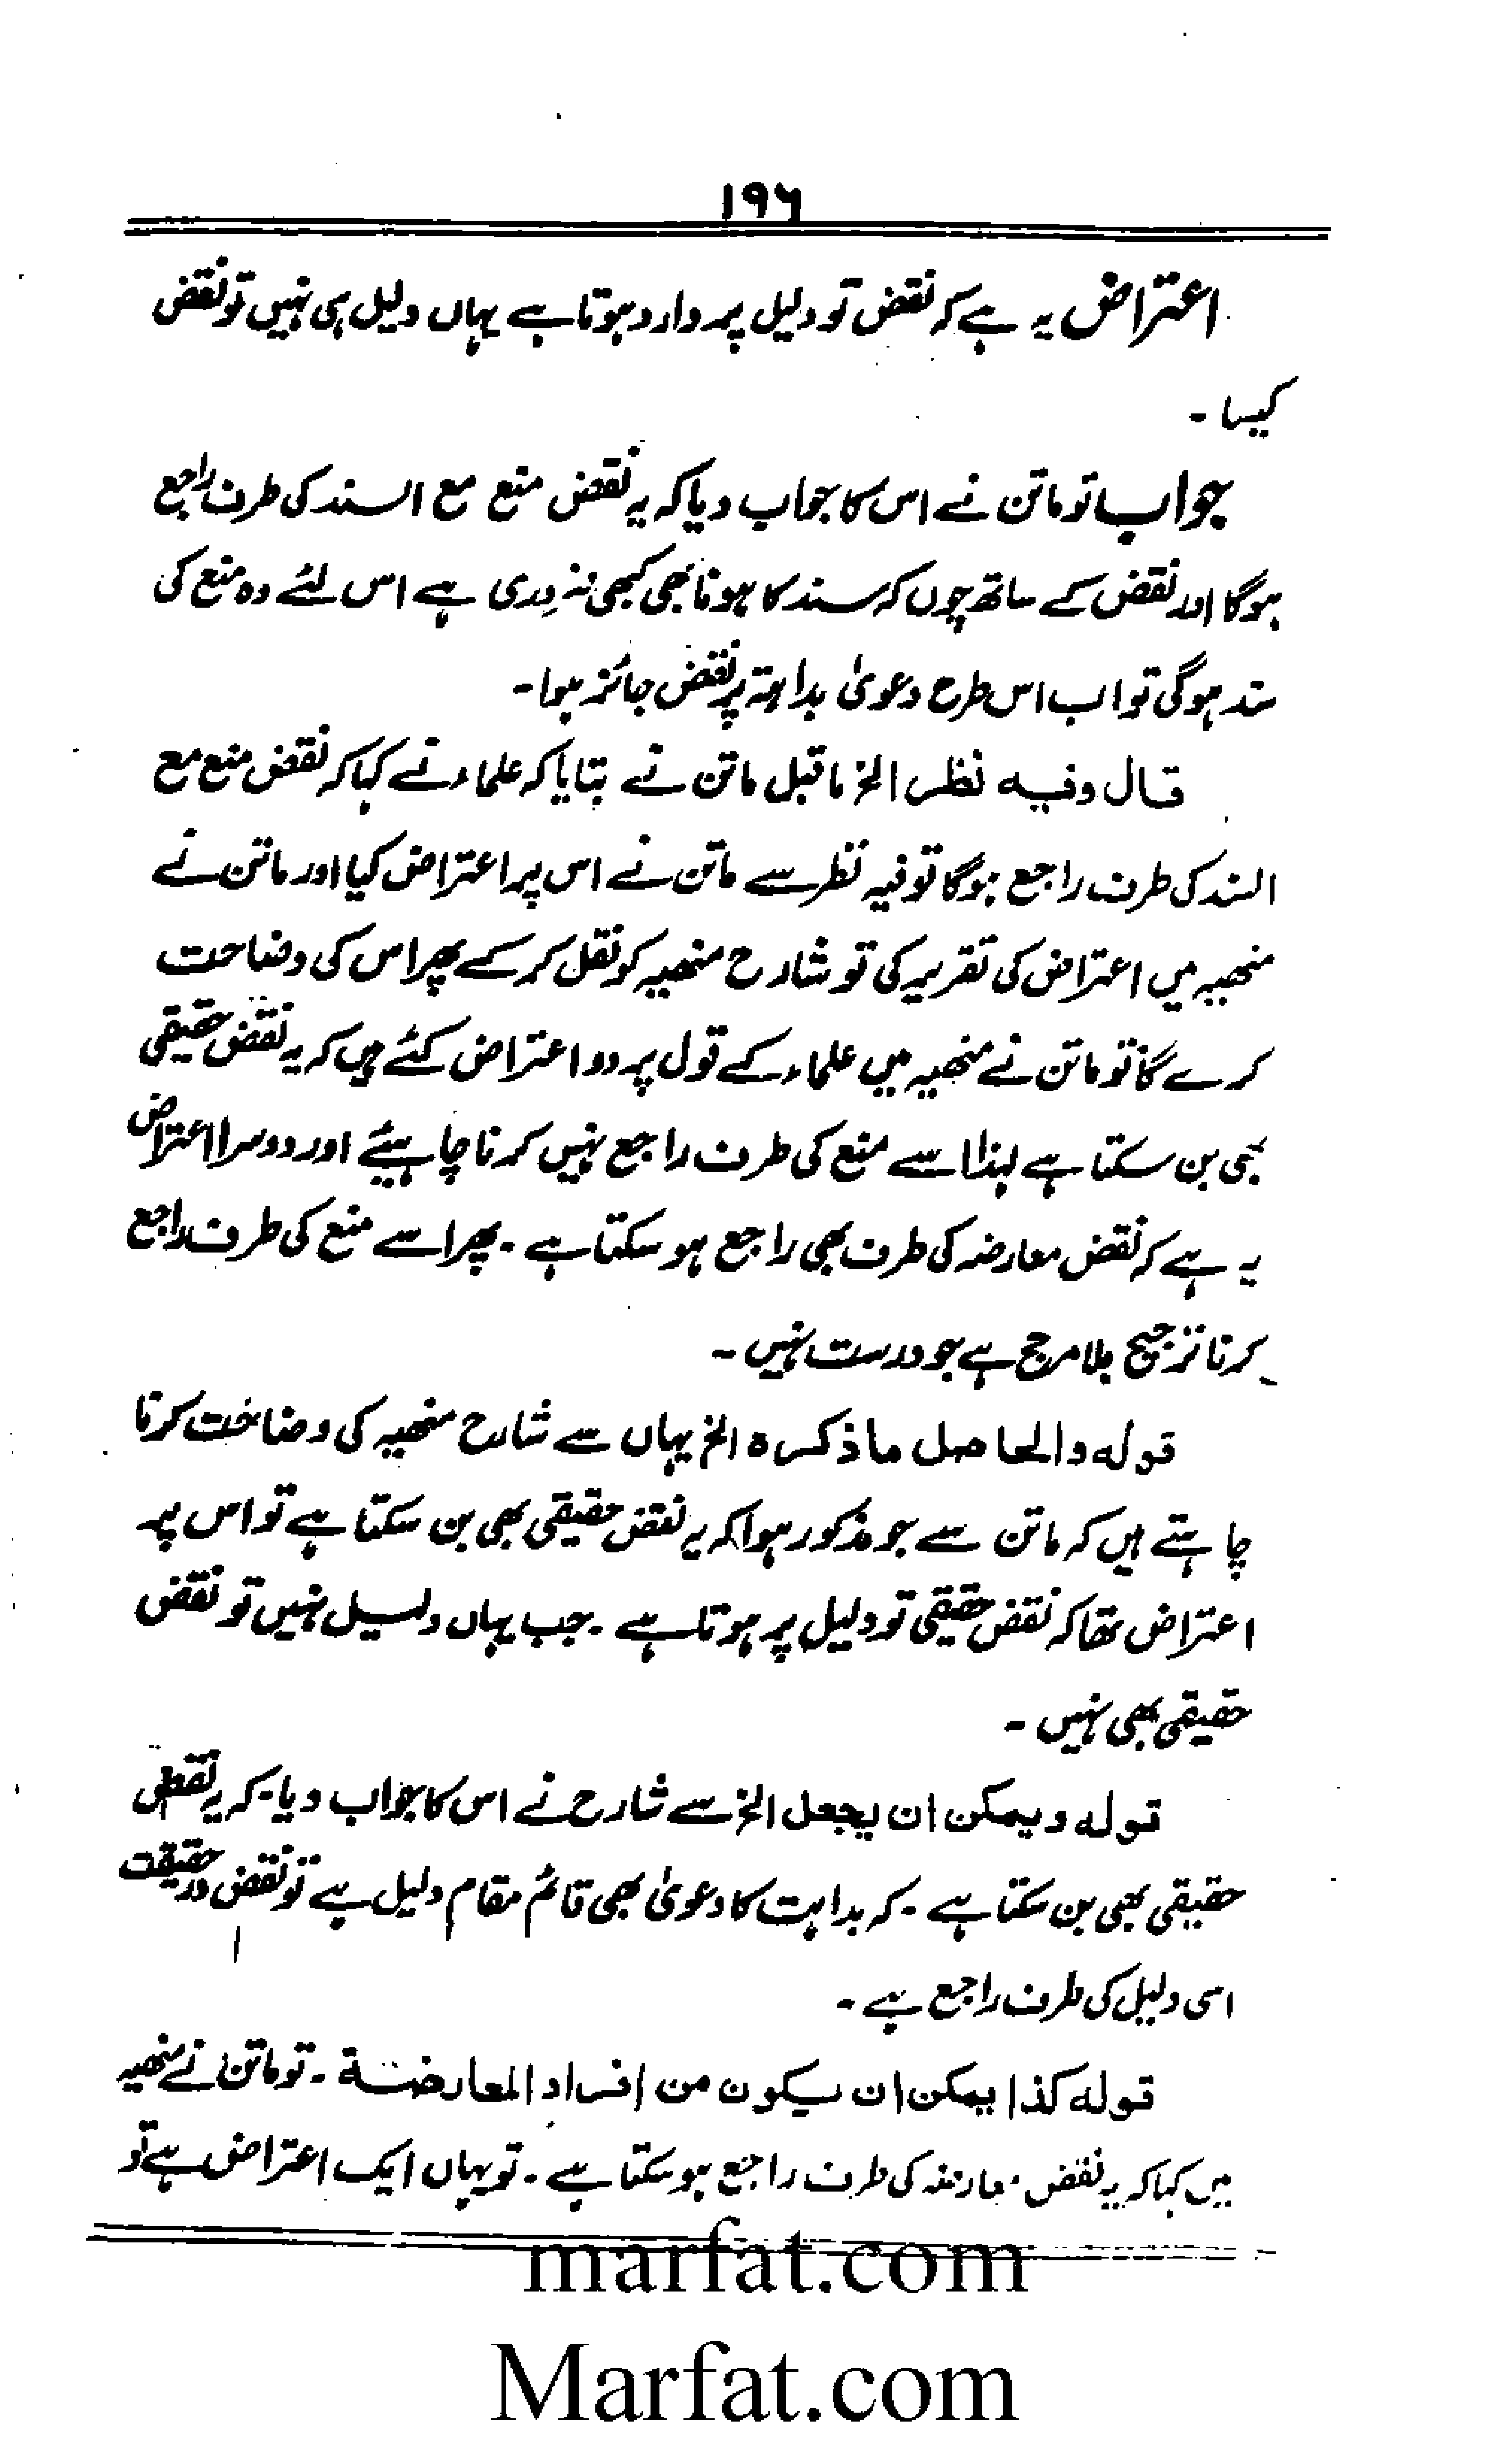 ۱۹۶
اعتراض یہ ہے کہ نقض تو دلیل پر وارد ہوتا ہے یہاں دلیل ہی نہیں تو نقض
کیسا ۔
جواب تو ماتن نے اس کا جواب دیا کہ یہ نقض منع مع السند کی طرف راجع
ہوگا اور نقض کے ساتھ چوں کہ سند کا ہونا بھی کبھی ضروری ہے اس لئے وہ منع کی
سند ہوگی تو اب اس طرح دعویٰ بداہۃ پر نقض جائز ہوا ۔
قال وفیہ نظر الخ ماقبل ماتن نے بتایا کہ علماء نے کہا کہ نقض منع مع
السند کی طرف راجع ہوگا تو فیہ نظر سے ماتن نے اس پر اعتراض کیا اور ماتن نے
منھیہ میں اعتراض کی تقریر کی تو شارح منھیہ کو نقل کر کے پھر اس کی وضاحت
کرے گا تو ماتن نے منھیہ میں علماء کے قول پر دو اعتراض کئے ہیں کہ یہ نقض حقیقی
بھی بن سکتا ہے لہٰذا اسے منع کی طرف راجع نہیں کرنا چاہیئے اور دوسرا اعتراض
یہ ہے کہ نقض معارضہ کی طرف بھی راجع ہو سکتا ہے ۔ پھر اسے منع کی طرف راجع
کرنا ترجیح بلا مرجح ہے جو درست نہیں ۔
قولہ والحاصل ماذکرہ الخ یہاں سے شارح منھیہ کی وضاحت کرنا
چاہتے ہیں کہ ماتن سے جو مذکور ہوا کہ یہ نقض حقیقی بھی بن سکتا ہے تو اس پر
اعتراض تھا کہ نقض حقیقی تو دلیل پر ہوتا ہے ۔ جب یہاں دلیل نہیں تو نقض
حقیقی بھی نہیں ۔
قولہ ویمکن ان یجعل الخ سے شارح نے اس کا جواب دیا ۔ کہ یہ نقض
حقیقی بھی بن سکتا ہے ۔ کہ بداہت کا دعویٰ بھی قائم مقام دلیل ہے تو نقض درحقیقت
اسی دلیل کی طرف راجع ہے ۔
قولہ کذا یمکن ان یکون من افراد المعارضۃ ۔ تو ماتن نے منھیہ
میں کہا کہ یہ نقض معارضہ کی طرف راجع ہو سکتا ہے ۔ تو یہاں ایک اعتراض ہے تو
marfat.com
Marfat.com